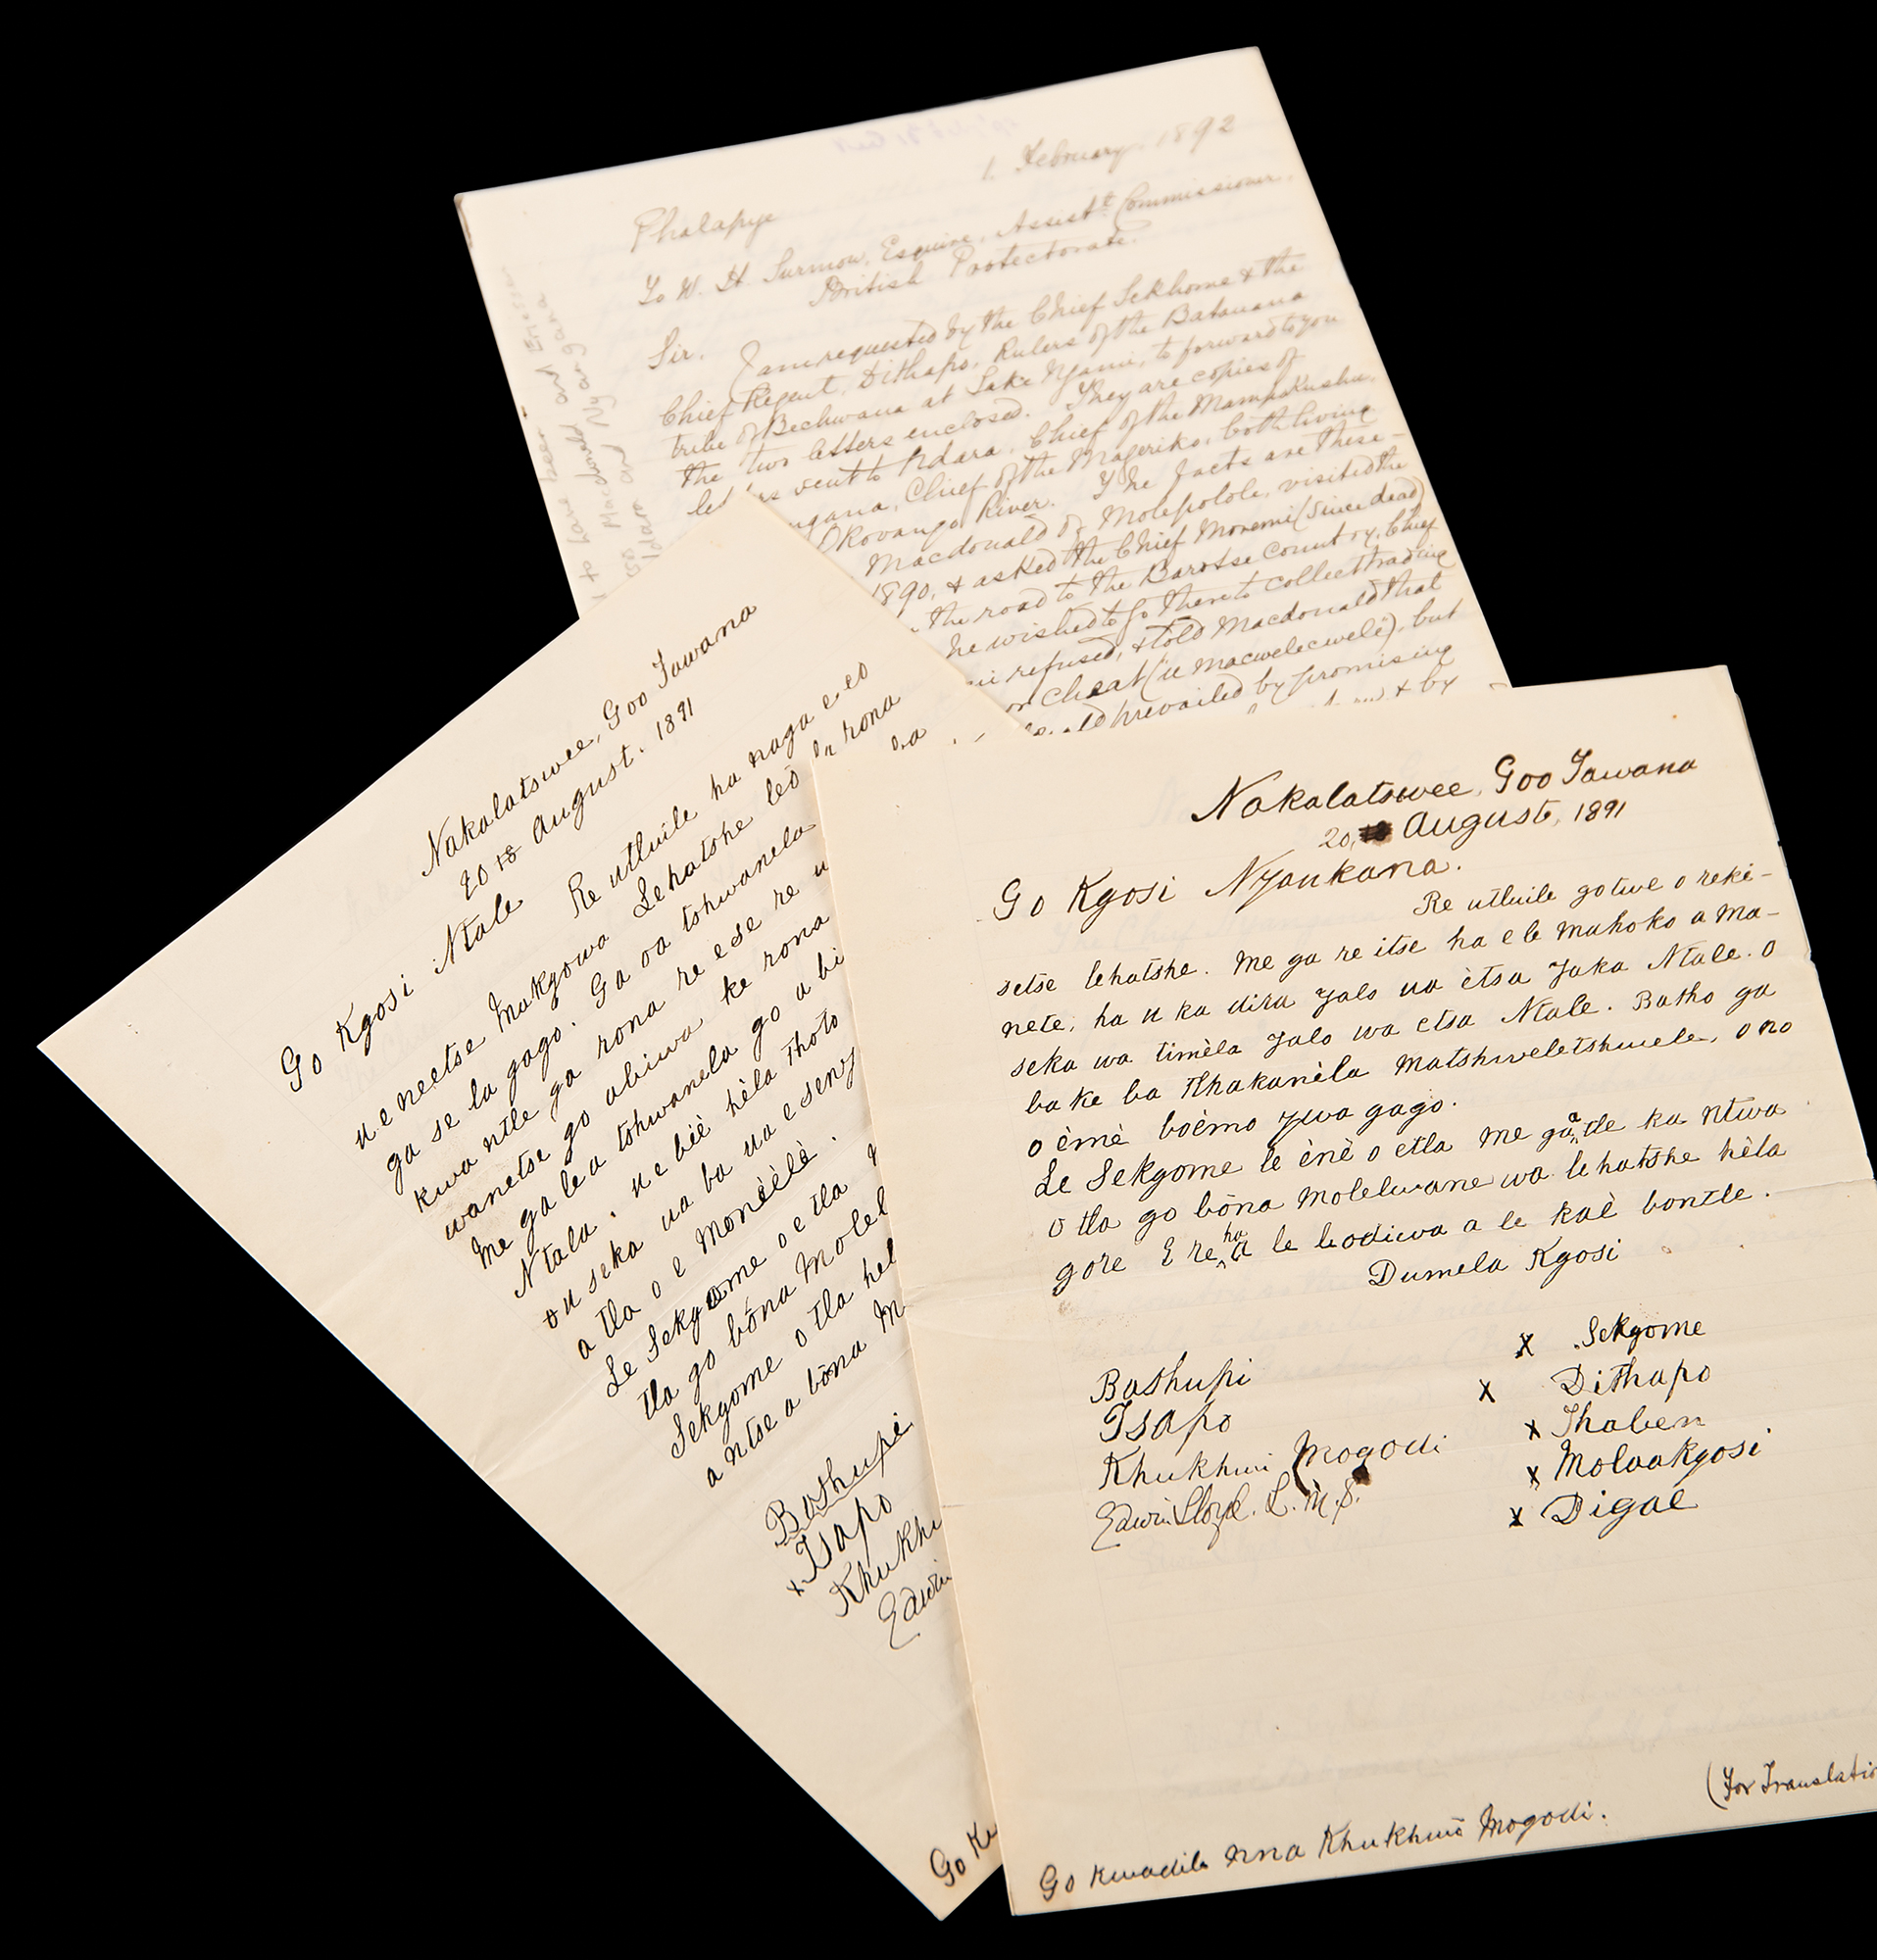 1. February. 1892
Phalapye
To W. H. Surmon, Esquire, Assistt. Commissioner,
British Protectorate.
Sir. I am requested by the Chief Sekhome & the
Chief Regent, Dithapo, Rulers of the Batawana
tribe of Bechwana at Lake Ngami, to forward to you
the two letters enclosed. They are copies of
sent to Ndara, Chief of the Mampukushu,
Chief of the Mageriko, both living
Okovango River. The facts are these-
Macdonald of Molepolole, visited the
1890, & asked the Chief Moremi (since dead)
the road to the Barotse Country, Chief
he wished to go there to collect trading
refused, & told Macdonald that
cheat (u macwelecwele), but
prevailed by promising
& by
to have been
as Macdonald and Ericssen
Ndara and Nyangana
Nakalatswee, Goo Tawana
20 18 August. 1891
Go Kgosi Ntale Re utluile ha naga e eo
u e neetse Makgowa Lehatshe leo rona
ga se la gago. Ga oa tshwanela
kwa ntle ga rona re ese re u
wanetse go abiwa ke rona
Me ga lea tshwanela go a bi
Ntala. u e bèè hèla thoto
ou seka ua ba ua e seny
a tla o e Monèèlè.
Le Sekgome o e tla
tla go bōna Molel
Sekgome o tla hel
a ntse a bōna M
Bathupi
x Tsapo
Khukhi
Edwin
Go Kw
Nakalatswee, Goo Tawana
20, 18 August, 1891
Go Kgosi Nyankana.
Re utluile gotwe o reki-
setse lehatshe. Me ga re itse ha e le mahoko a Ma-
nete, ha u ka dira Jalo ua ètsa Jaka Ntale. O
seka wa timèla Jalo wa etsa Ntale. Batho ga
ba ke ba Khakanèla Matshweletshwele, o no
o èmè boèmo Jwa gago.
Le Sekgome le ènè o etla me gaatle ka ntwa
o tla go bōna molelwane wa lehatshe hèla
gore E re ha a le leodiwa a le kaè bontle.
Dumela Kgosi
x Sekgome
Bathupi x Dithapo
Tsapo x Thaben
Khukhwi Mogodi x Molaakgosi
Edwin Lloyd. L.M.S. x Digaè
(For Translatio
Go kwadile nna Khukhwi Mogodi.